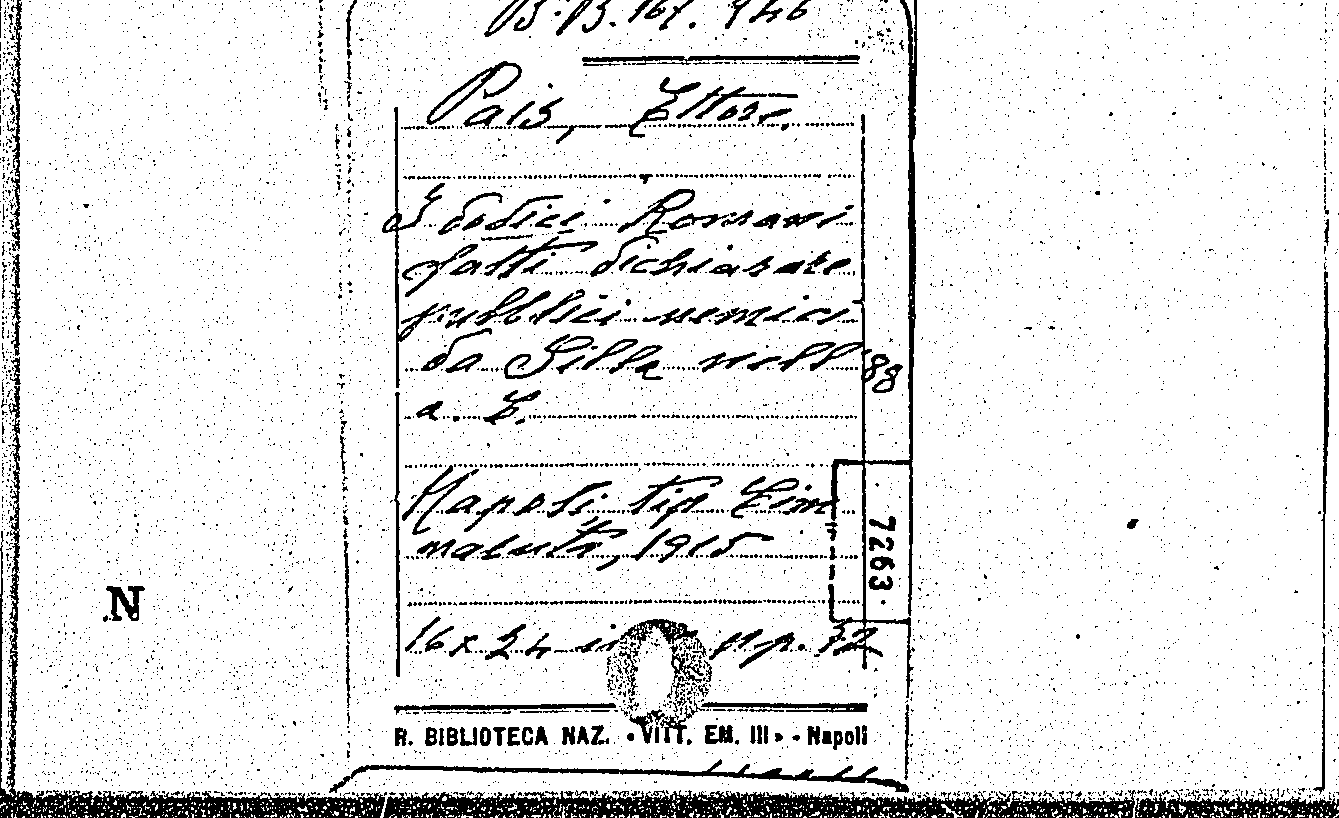 B.B. 167. 946
Pais, Ettore.
I dodici Romani
fatti dichiarare
pubblici nemici
da Silla nell'88
a. C.
Napoli, tip. Cim
maruta, 1915
7263
N
16 x 24 in pp. 32
R. BIBLIOTECA NAZ. «VITT. EM. III» - Napoli